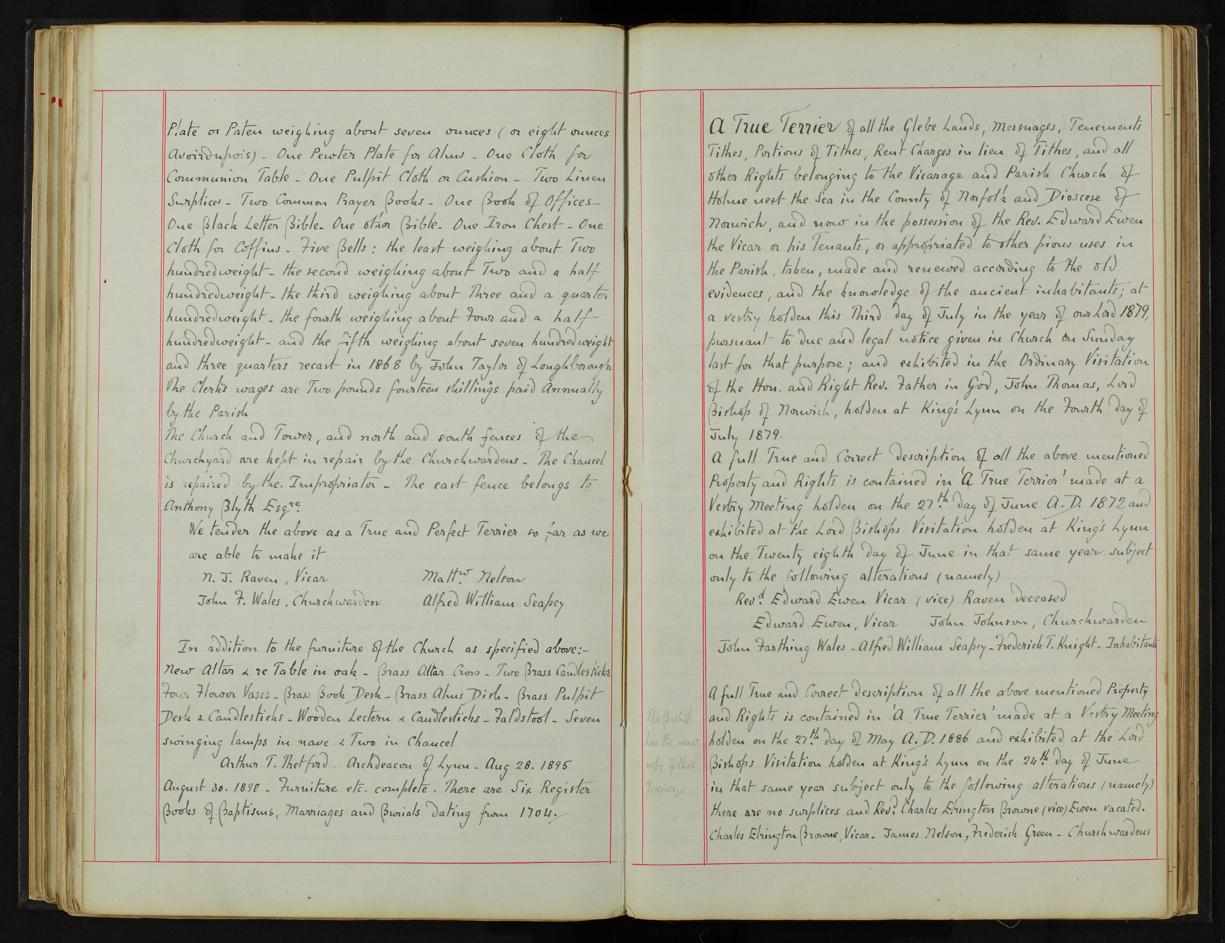 Plate or Paten weighing about seven ounces (or eight ounces
Avoirdupois) - One Pewter Plate for Alms - One Cloth for
Communion Table - One Pulpit Cloth or Cushion - Two Linen
Surplices - Two Common Prayer Books - One Book of Offices -
One Black Letter Bible - One other Bible - One Iron Chest - One
Cloth for Coffins - Five Bells: the least weighing about Two
hundredweight - the second weighing about Two and a half
hundredweight - the third weighing about Three and a quarter
hundredweight - the fourth weighing about Four and a half
hundredweight - and the fifth weighing about seven hundredweight
and three quarters recast in 1868 by John Taylor of Loughborough
The Clerk's wages are Two pounds fourteen shillings paid Annually
by the Parish
The Church and Tower, and north and south fences of the
Churchyard are kept in repair by the Churchwardens - The Chancel
is repaired by the Impropriator - The east fence belongs to
Anthony Blyth Esqre
We tender the above as a True and Perfect Terrier so far as we
are able to make it
N. J. Raven, Vicar Mattw Nelson
John F. Wales, Churchwarden Alfred William Seapey
In addition to the furniture of the Church as specified above:-
New Altar & re Table in oak - Brass Altar Cross - Two Brass Candlesticks
Four Flower Vases - Brass Book Desk - Brass Alms Dish - Brass Pulpit
Desk & Candlesticks - Wooden Lectern & Candlesticks - Faldstool - Seven
swinging lamps in nave & Two in Chancel
Arthur T. Thetford - Archdeacon of Lynn - Aug 28. 1895
August 30. 1898 - Furniture etc. complete. There are Six Register
Books of Baptisms, Marriages and Burials dating from 1704.
A True Terrier of all the Glebe Lands, Messuages, Tenements
Tithes, Portions of Tithes, Rent Charges in lieu of Tithes, and all
other Rights belonging to the Vicarage and Parish Church of
Holme next the Sea in the County of Norfolk and Dioscese of
Norwich, and now in the possession of the Rev. Edward Ewen
the Vicar or his Tenants, or appropriated to other pious uses in
the Parish, taken, made and renewed according to the old
evidences, and the knowledge of the ancient inhabitants; at
a vestry holden this Third day of July in the year of our Lord 1879,
pursuant to due and legal notice given in Church on Sunday
last for that purpose; and exhibited in the Ordinary Visitation
of the Hon. and Right Rev. Father in God, John Thomas, Lord
Bishop of Norwich, holden at King's Lynn on the Fourth day of
July 1879.
A full True and Correct description of all the above mentioned
Property and Rights is contained in 'A True Terrier' made at a
Vestry Meeting holden on the 27th day of June A.D. 1872 and
exhibited at the Lord Bishops Visitation holden at King's Lynn
on the Twenty eighth day of June in that same year subject
only to the following alterations (namely)
Revd. Edward Ewen Vicar (vice) Raven deceased
Edward Ewen, Vicar John Johnson, Churchwarden
John Farthing Wales - Alfred William Seapey - Frederick T. Knight - Inhabitants
A full True and Correct description of all the above mentioned Property
and Rights is contained in 'A True Terrier' made at a Vestry Meeting
holden on the 27th day of May A.D. 1886 and exhibited at the Lord
Bishops Visitation holden at King's Lynn on the 24th day of June
in that same year subject only to the following alterations (namely)
there are no surplices and Revd. Charles Elrington Browne (vice) Ewen vacated.
Charles Elrington Browne, Vicar - James Nelson, Frederick Green - Churchwardens
The Bishop
has the new
copy of this
Terrier